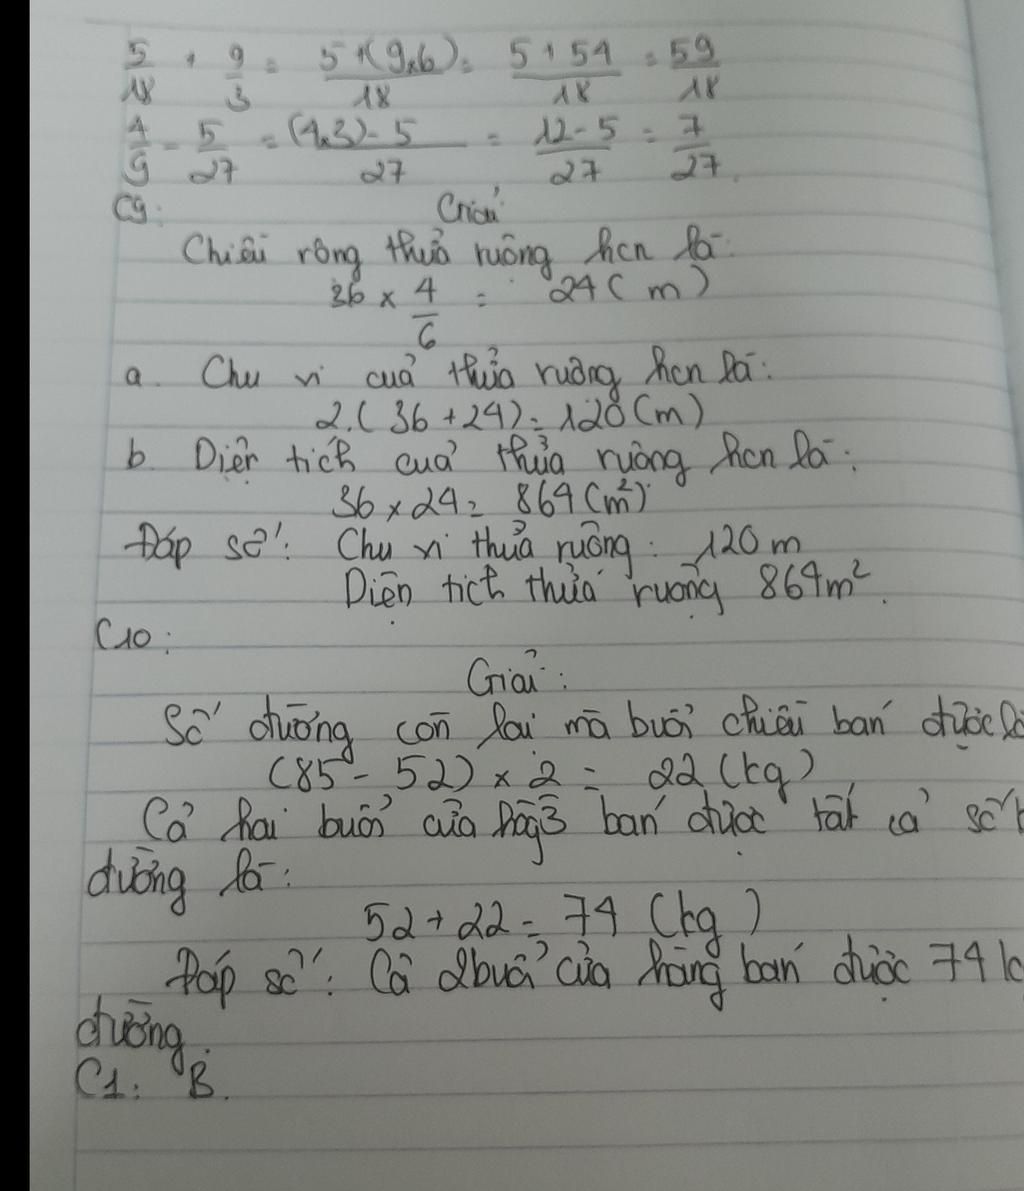 5/18 + 9/3 = 5+(9×6)/18 = 5+54/18 = 59/18
4/9 - 5/27 = (4×3)-5/27 = 12-5/27 = 7/27.
C9: Giải:
Chiều rộng thuả ruộng hcn là:
36 × 4/6 = 24 (m)
a. Chu vi cuả thửa ruộng hcn là:
2.(36+24)=120(m)
b. Diện tích cuả thửa ruộng hcn là:
36×24= 864(m²)
Đáp số: Chu vi thửa ruộng: 120 m
Diện tích thửa ruộng 864m².
C10:
Giải:
Số đường còn lại mà buổi chiều bán được là
(85-52) × 2/3 = 22 (kg)
Cả hai buổi cửa hàng bán được tất cả số
đường là:
52+22= 74 (kg)
Đáp số: Cả 2 buổi cửa hàng bán được 74 k
đường.
C1: B.